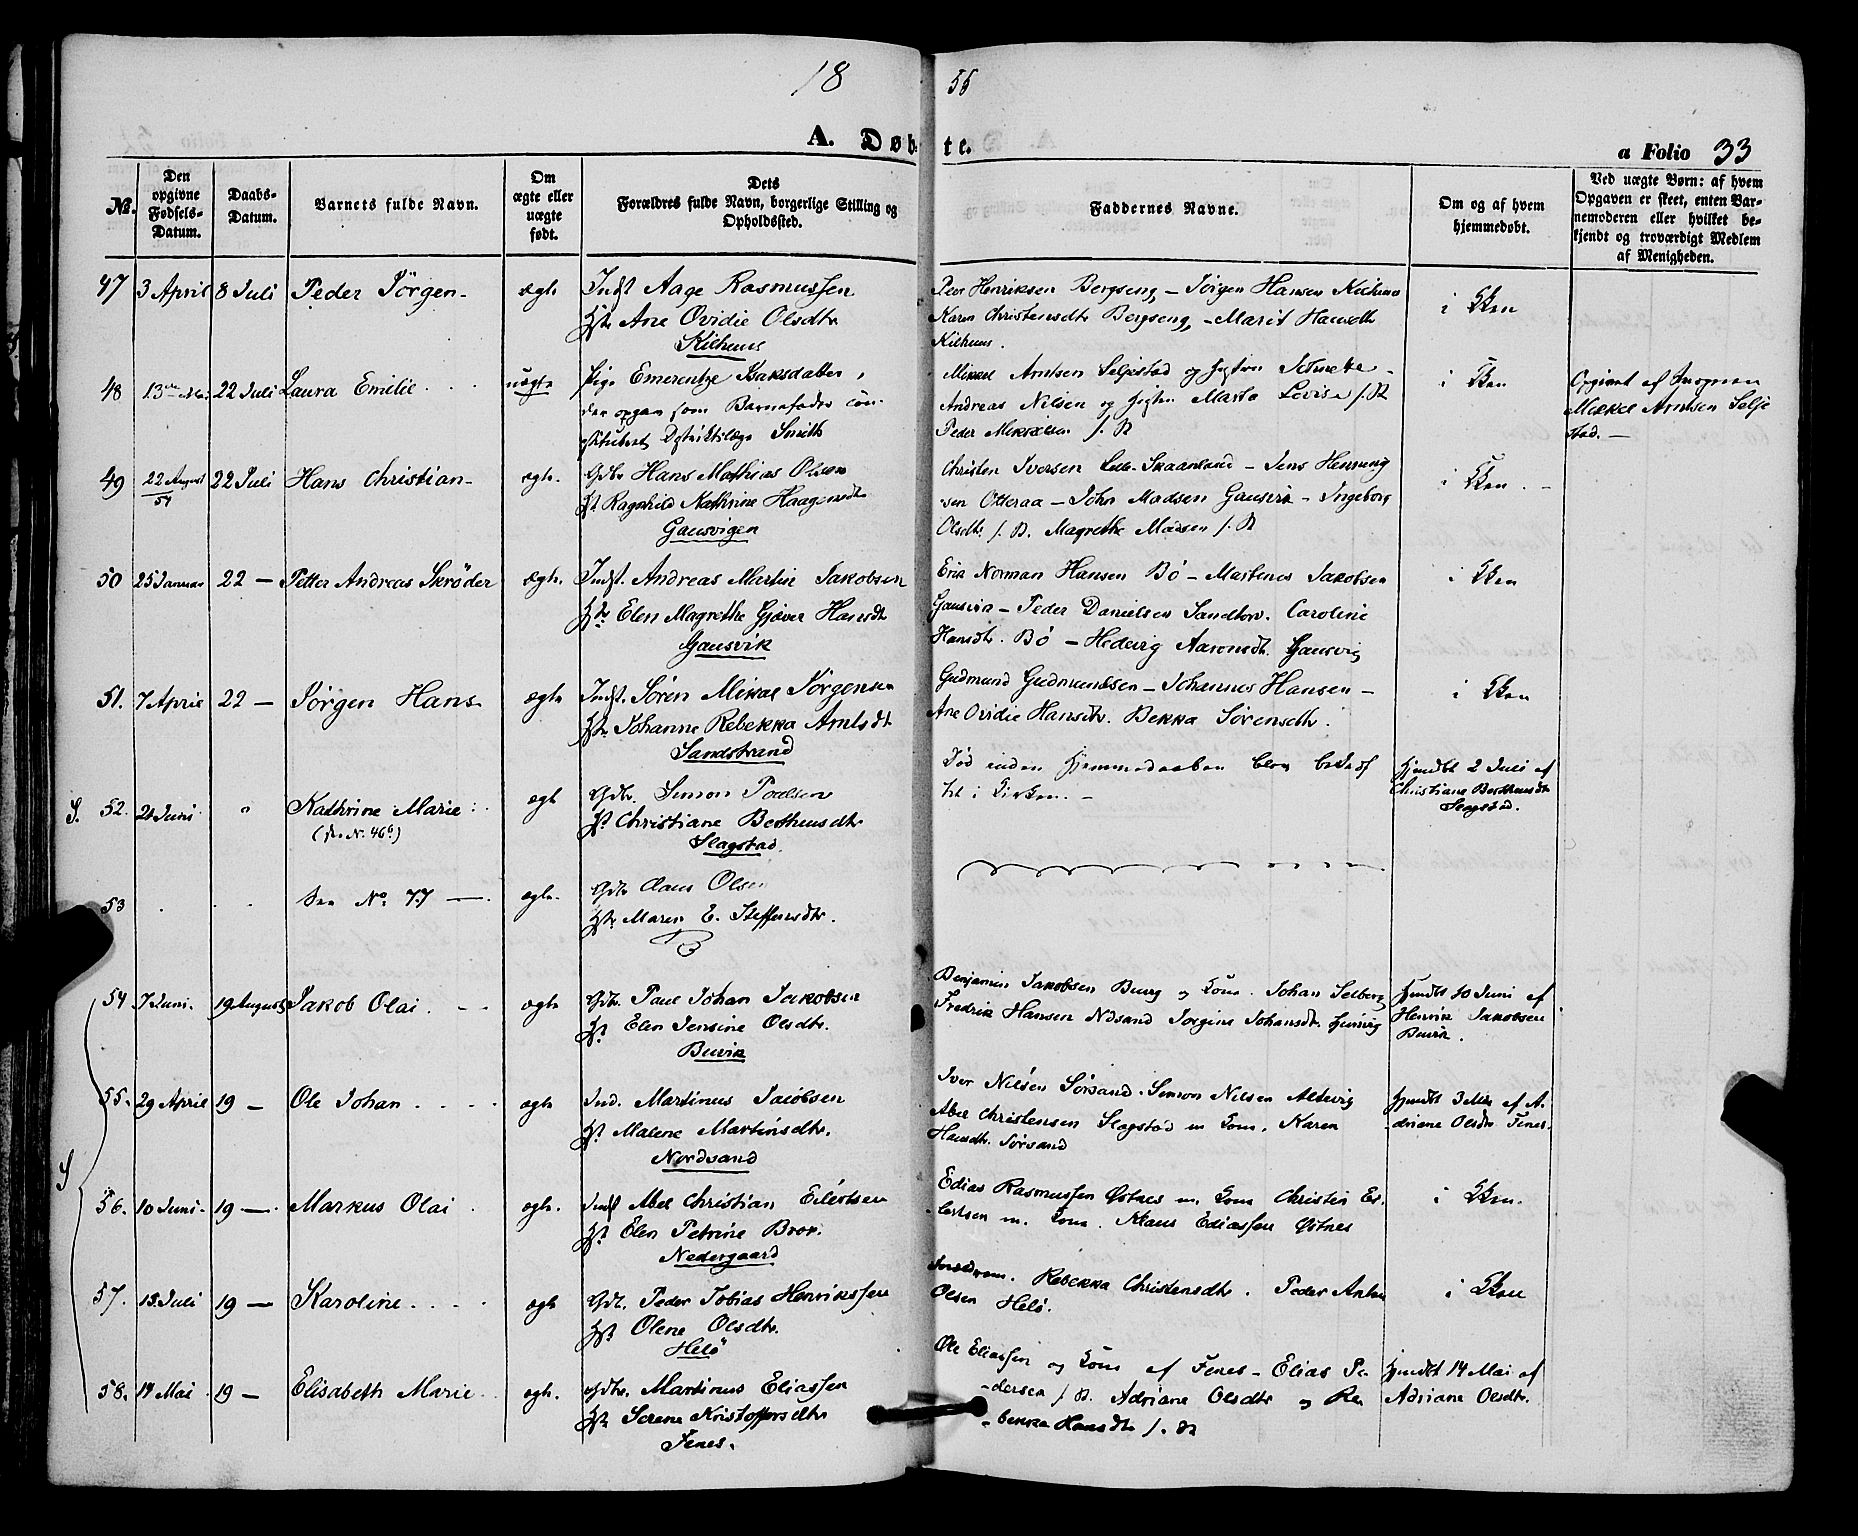 18 55
A. Døbte. a Folio 33
No.
Den opgivne Fødsels-Datum.
Daabs-Datum.
Barnets fulde Navn.
Om ægte eller uægte født.
Dets Forældres fulde Navn, borgerlige Stilling og Opholdssted.
Faddernes Navne.
Om og af hvem hjemmedøbt.
Ved uægte Børn: af hvem Opgaven er skeet, enten Barnemoderen eller hvilket bekjendt og troværdigt Medlem af Menigheden.
47 3 April 8 Juli Peder Jörgen ægte Indst Aage Rasmussen
Hst Ane Ovidie Olsdtr
Kilhuus
Peer Henriksen Bergseng – Jörgen Hansen Kilhuus
Karen Christensdtr Bergseng – Marit Hansdtr
Kilhuus.
i Kken
48 13de 22 Juli Laura Emilie uægte Pige Emerentze Isaksdatter,
der opgav som Barnefader con-
stitueret Distriktslæge Smith
Mikkel Arntsen Seljestad og
Andreas Nilsen og Marta Lovise
Peder Mikkelsen
i Kken
Opgivet af
Mikkel Arntsen Selje
stad. —
49 22 August 54 22 Juli Hans Christian ægte. Gdbr Hans Mathias Olsen
Hst Ragnhild Kathrine Haagensdtr
Gausvigen
Christen Iversen Skaanland – Jens Henning
sen Otteraa – John Madsen Gausvik – Ingeborg
Olsdtr. Magrethe Madsen
i Kken.
50 25 Januar 22 — Petter Andreas Skröder ægte. Indst. Andreas Martin Jakobsen
Hst Elen Magrethe Gjæver Hansdtr
Gausvik
Erik Norman Hansen Bö – Martenus Jakobsen
Gausvik – Peder Danielsen Sandtorv. Caroline
Hansdtr. Bö – Hedevig Aaronsdtr. Gausvig
i Kken
51. 7 April 22 — Jörgen Hans ægte Indst. Sören Mikkal Jörgensen
Hst. Johanne Rebekka Arntsdtr
Sandstrand
Gudmund Gudmundsen – Johannes Hansen –
Ane Ovidie Hansdtr. Bekka Sörensdtr.
i Kken
S. 52. 21 Juni " Kathrine Marie
(No. 46b)
ægte Gdbr. Simon Paulsen
Hst Christiane Berthensdtr
Slagstad.
Död inden Hjemmedaaben blev
i Kirken. –
Hjmdbt 2 Juli af
Christiane Berthensdtr
Slagstad.
53 See No. 77 — ægte. Gdbr Claus Olsen
Hst Maren E. Steffensdtr.
54 7 Juni. 19 August Jakob Olai ægte Gdbr. Paul Johan Jakobsen
Hst Elen Jensine Olsdtr.
Buvik
Benjamin Jakobsen Buvig og Kone. Johan Selberg
Fredrik Hansen Ndsand Jorgine Johansdtr
Hjmdbt 10 Juni af
Henrik Jakobsen
Buvik.
55. 29 April 19 — Ole Johan ægte Ind. Martinus Jacobsen
Hst Malene Martinsdtr.
Nordsand
Iver Nilsen Sörsand. Simon Nilsen Altevig
Abel Christensen Slagstad m Kone. Karen
Hansdtr. Sörsand
Hjmdbt 3 Mai af A-
driane Olsdtr Fenes.
S 56. 10 Juni. 19 — Markus Olai ægte. Indst Abel Christian Eilertsen
Hst Elen Petrine Bror.
Nedergaard
Edias Rasmussen Östnes m. Kone Christen Ei-
lertsen m. Kone. Klaus Ediassen Östnes
i Kken.
57. 15 Juli 19 — Karoline ægte Gdbr. Peder Tobias Henrikssen
Hst Olene Olsdtr.
Helö
Forældrene. Rebekka Christensdtr. Peder Anton
Olsen Helö.
i Kken
58. 14 Mai 19 — Elisabeth Marie ægte. Gdbr. Martinus Eliassen
Hst Serene Kristoffersdtr
Fenes.
Ole Eliassen og Kone af Fenes – Elias Pe-
dersen Adriane Olsdtr og Re
bekka Hansdtr
Hjmdbt 14 Mai af
Adriane Olsdtr.